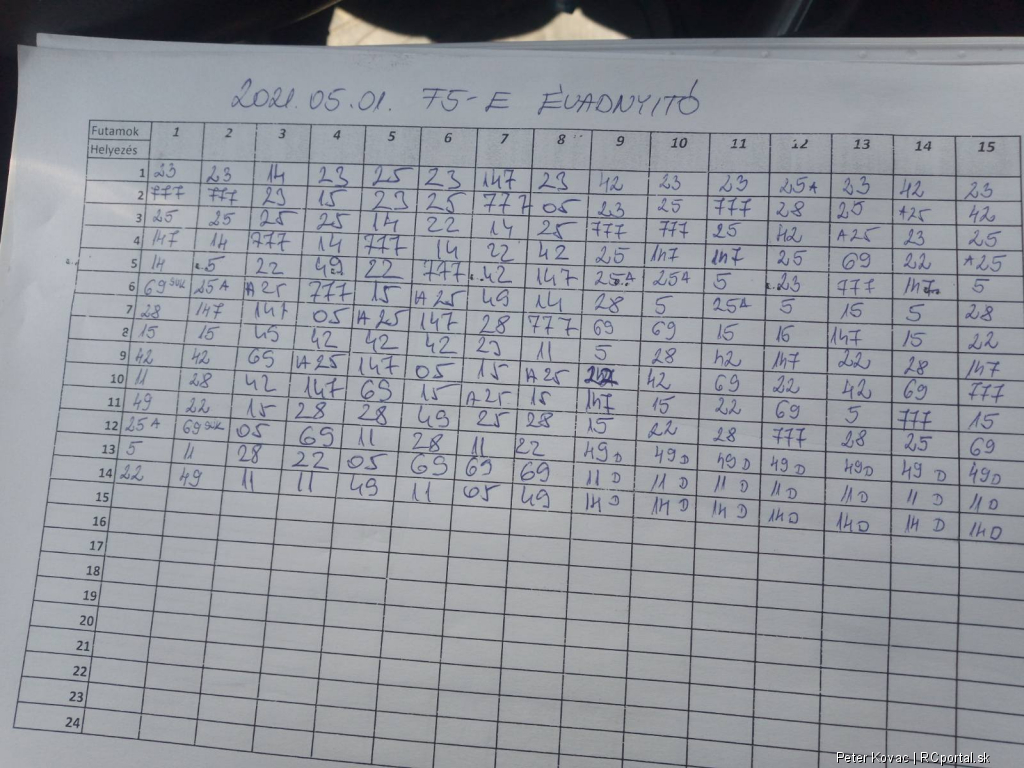 2021.05.01. 75-E ÉVADNYITÓ
Futamok 1 2 3 4 5 6 7 8 9 10 11 12 13 14 15
Helyezés
1 23 23 14 23 25 23 147 23 42 23 23 25A 23 42 23
2 777 777 23 15 23 25 777 05 23 25 777 28 25 A25 42
3 25 25 25 25 14 22 14 25 777 777 25 42 A25 23 25
4 147 14 777 14 777 14 22 42 25 147 147 25 69 22 A25
5 14 5 22 49 22 777 42 147 25A 25A 5 23 777 147 5
6 69 SUK 25A A25 777 15 A25 49 14 28 5 25A 5 15 5 28
7 28 147 147 05 A25 147 28 777 69 69 15 16 147 15 22
8 15 15 49 42 42 42 23 11 5 28 42 147 22 28 147
9 42 42 69 A25 147 05 15 A25 22 42 69 22 42 69 777
10 11 28 42 147 69 15 A25 15 147 15 22 69 5 777 15
11 49 22 15 28 28 49 25 28 15 22 28 777 28 25 69
12 25A 69 SUK 05 69 11 28 11 22 49D 49D 49D 49D 49D 49D 49D
13 5 11 28 22 05 69 69 69 11D 11D 11D 11D 11D 11D 11D
14 22 49 11 11 49 11 05 49 14D 14D 14D 14D 14D 14D 14D
15
16
17
18
19
20
21
22
23
24
Peter Kovac | RCportal.sk